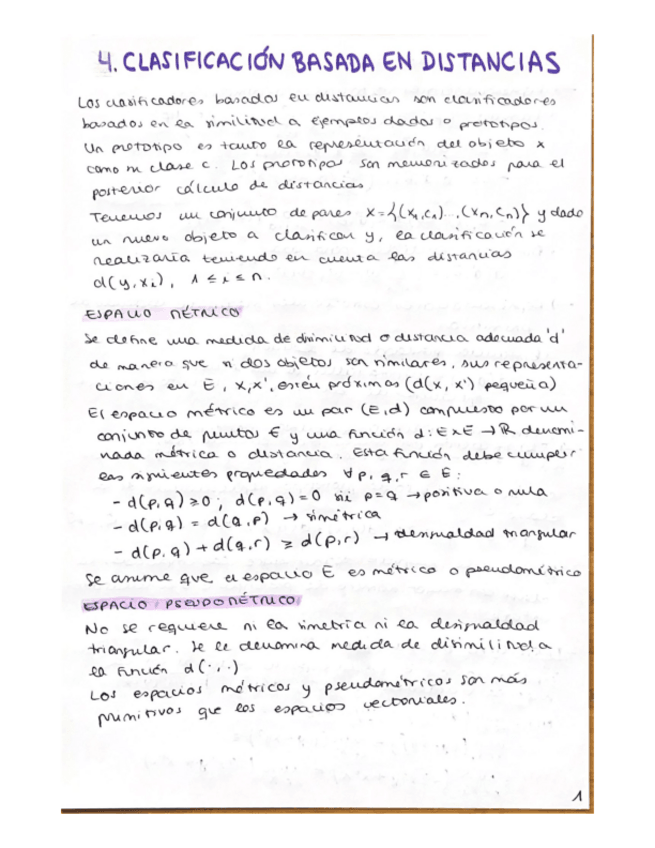 4. CLASIFICACIÓN BASADA EN DISTANCIAS
Los clasificadores basados en distancias son clasificadores
basados en la similitud a ejemplos dados o prototipos.
Un prototipo es tanto la representación del objeto x
como su clase c. Los prototipos son memorizados para el
posterior cálculo de distancias
Tenemos un conjunto de pares X={(x1,c1)...,(xn,cn)} y dado
un nuevo objeto a clasificar y, la clasificación se
realizaría teniendo en cuenta las distancias
d(y,xi), 1≤i≤n.
ESPACIO MÉTRICO
Se define una medida de disimilitud o distancia adecuada 'd'
de manera que si dos objetos son similares, sus representa-
ciones en E, x,x', estén próximas (d(x,x') pequeña)
El espacio métrico es un par (E,d) compuesto por un
conjunto de puntos E y una función d:E×E→ℝ denomi-
nada métrica o distancia. Esta función debe cumplir
las siguientes propiedades ∀p,q,r ∈ E:
- d(p,q)≥0; d(p,q)=0 sii p=q → positiva o nula
- d(p,q) = d(q,p) → simétrica
- d(p,q)+d(q,r) ≥ d(p,r) → desigualdad triangular
Se asume que el espacio E es métrico o pseudométrico
ESPACIO PSEUDOMÉTRICO
No se requiere ni la simetría ni la desigualdad
triangular. Se le denomina medida de disimilitud a
la función d(·,·)
Los espacios métricos y pseudométricos son más
primitivos que los espacios vectoriales.
1